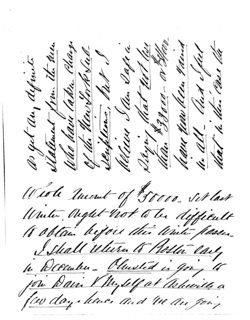 as yet any definite
statement from the men
who have taken charge
of the New York sub-
scriptions but I
believe I am safe in
saying that not less
than $39000 - or $40000
have now been gained
in all - And I feel
that in this case the
whole amount of $50000 - set last
Winter, ought not to be difficult
to obtain before this winter passes
I shall return to Boston early
in December - Olmsted is going to
join Davis & Myself at Asheville a
few days hence and we are going